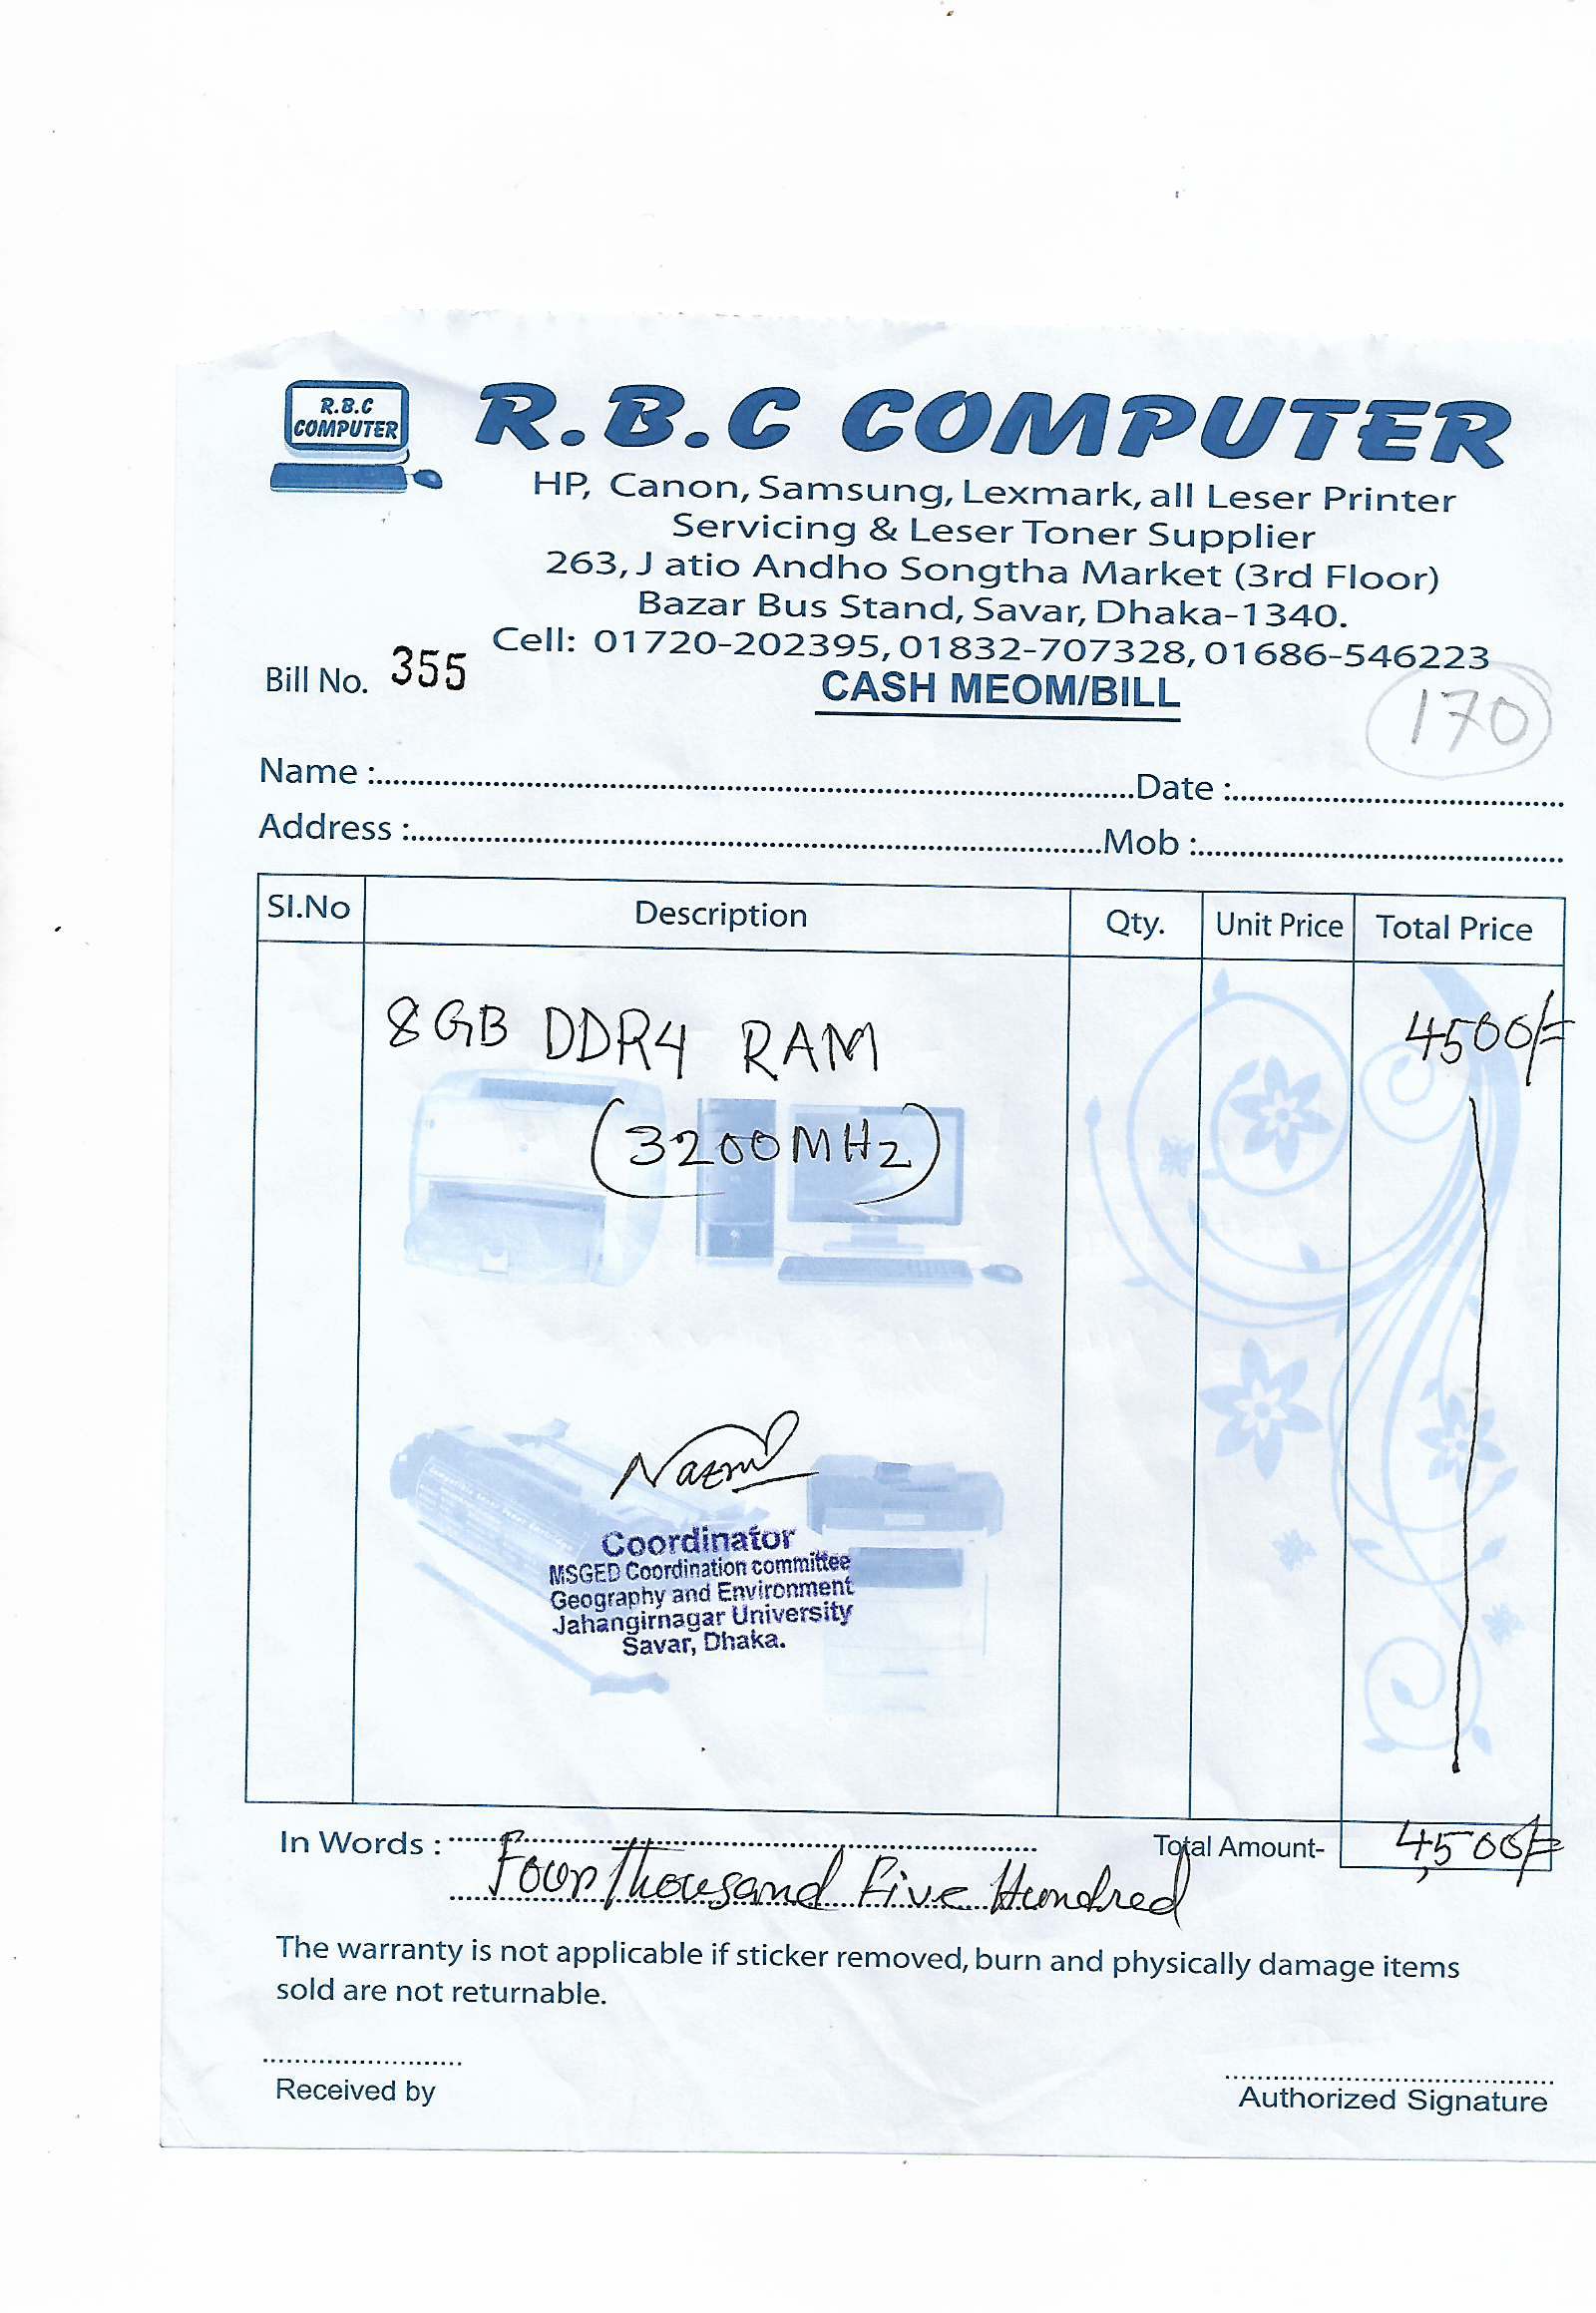 R.B.C
COMPUTER
R.B.C COMPUTER
HP, Canon, Samsung, Lexmark, all Leser Printer
Servicing & Leser Toner Supplier
263, J atio Andho Songtha Market (3rd Floor)
Bazar Bus Stand, Savar, Dhaka-1340.
Cell: 01720-202395, 01832-707328, 01686-546223
Bill No. 355
CASH MEOM/BILL
170
Name : Date :
Address : Mob :
Sl.No Description Qty. Unit Price Total Price
8GB DDR4 RAM 4500/=
(3200MHz)
Nazrul
Coordinator
MSGED Coordination committee
Geography and Environment
Jahangirnagar University
Savar, Dhaka.
In Words : Total Amount- 4,500/=
Four Thousand Five Hundred
The warranty is not applicable if sticker removed, burn and physically damage items
sold are not returnable.
Received by Authorized Signature